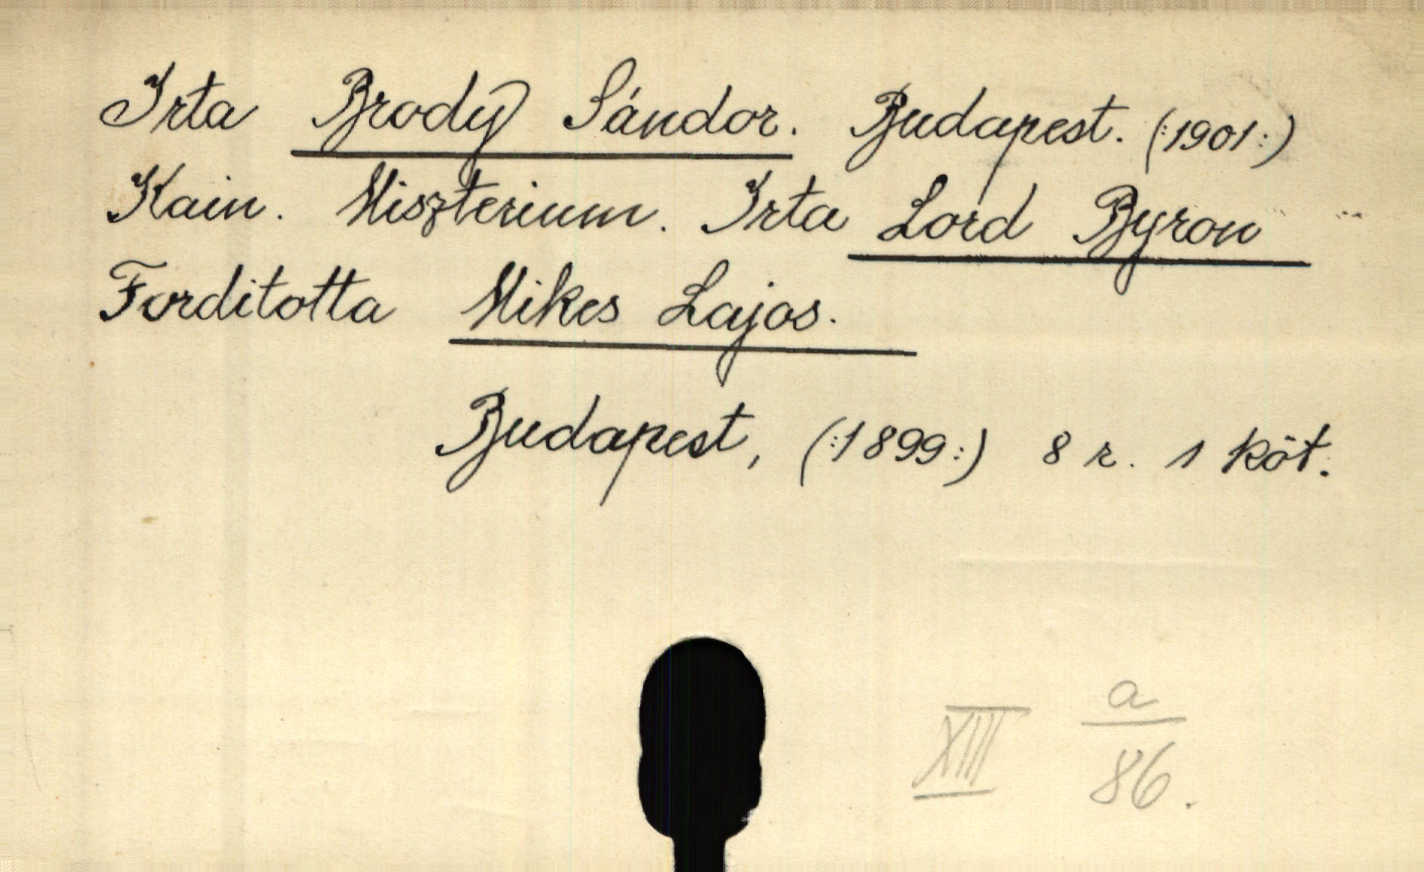 Irta Brody Sándor. Budapest. (:1901:)
Kain. Miszterium. Irta Lord Byron
Forditotta Mikes Lajos.
Budapest, (:1899:) 8 r. 1 köt.
XIII a/86.